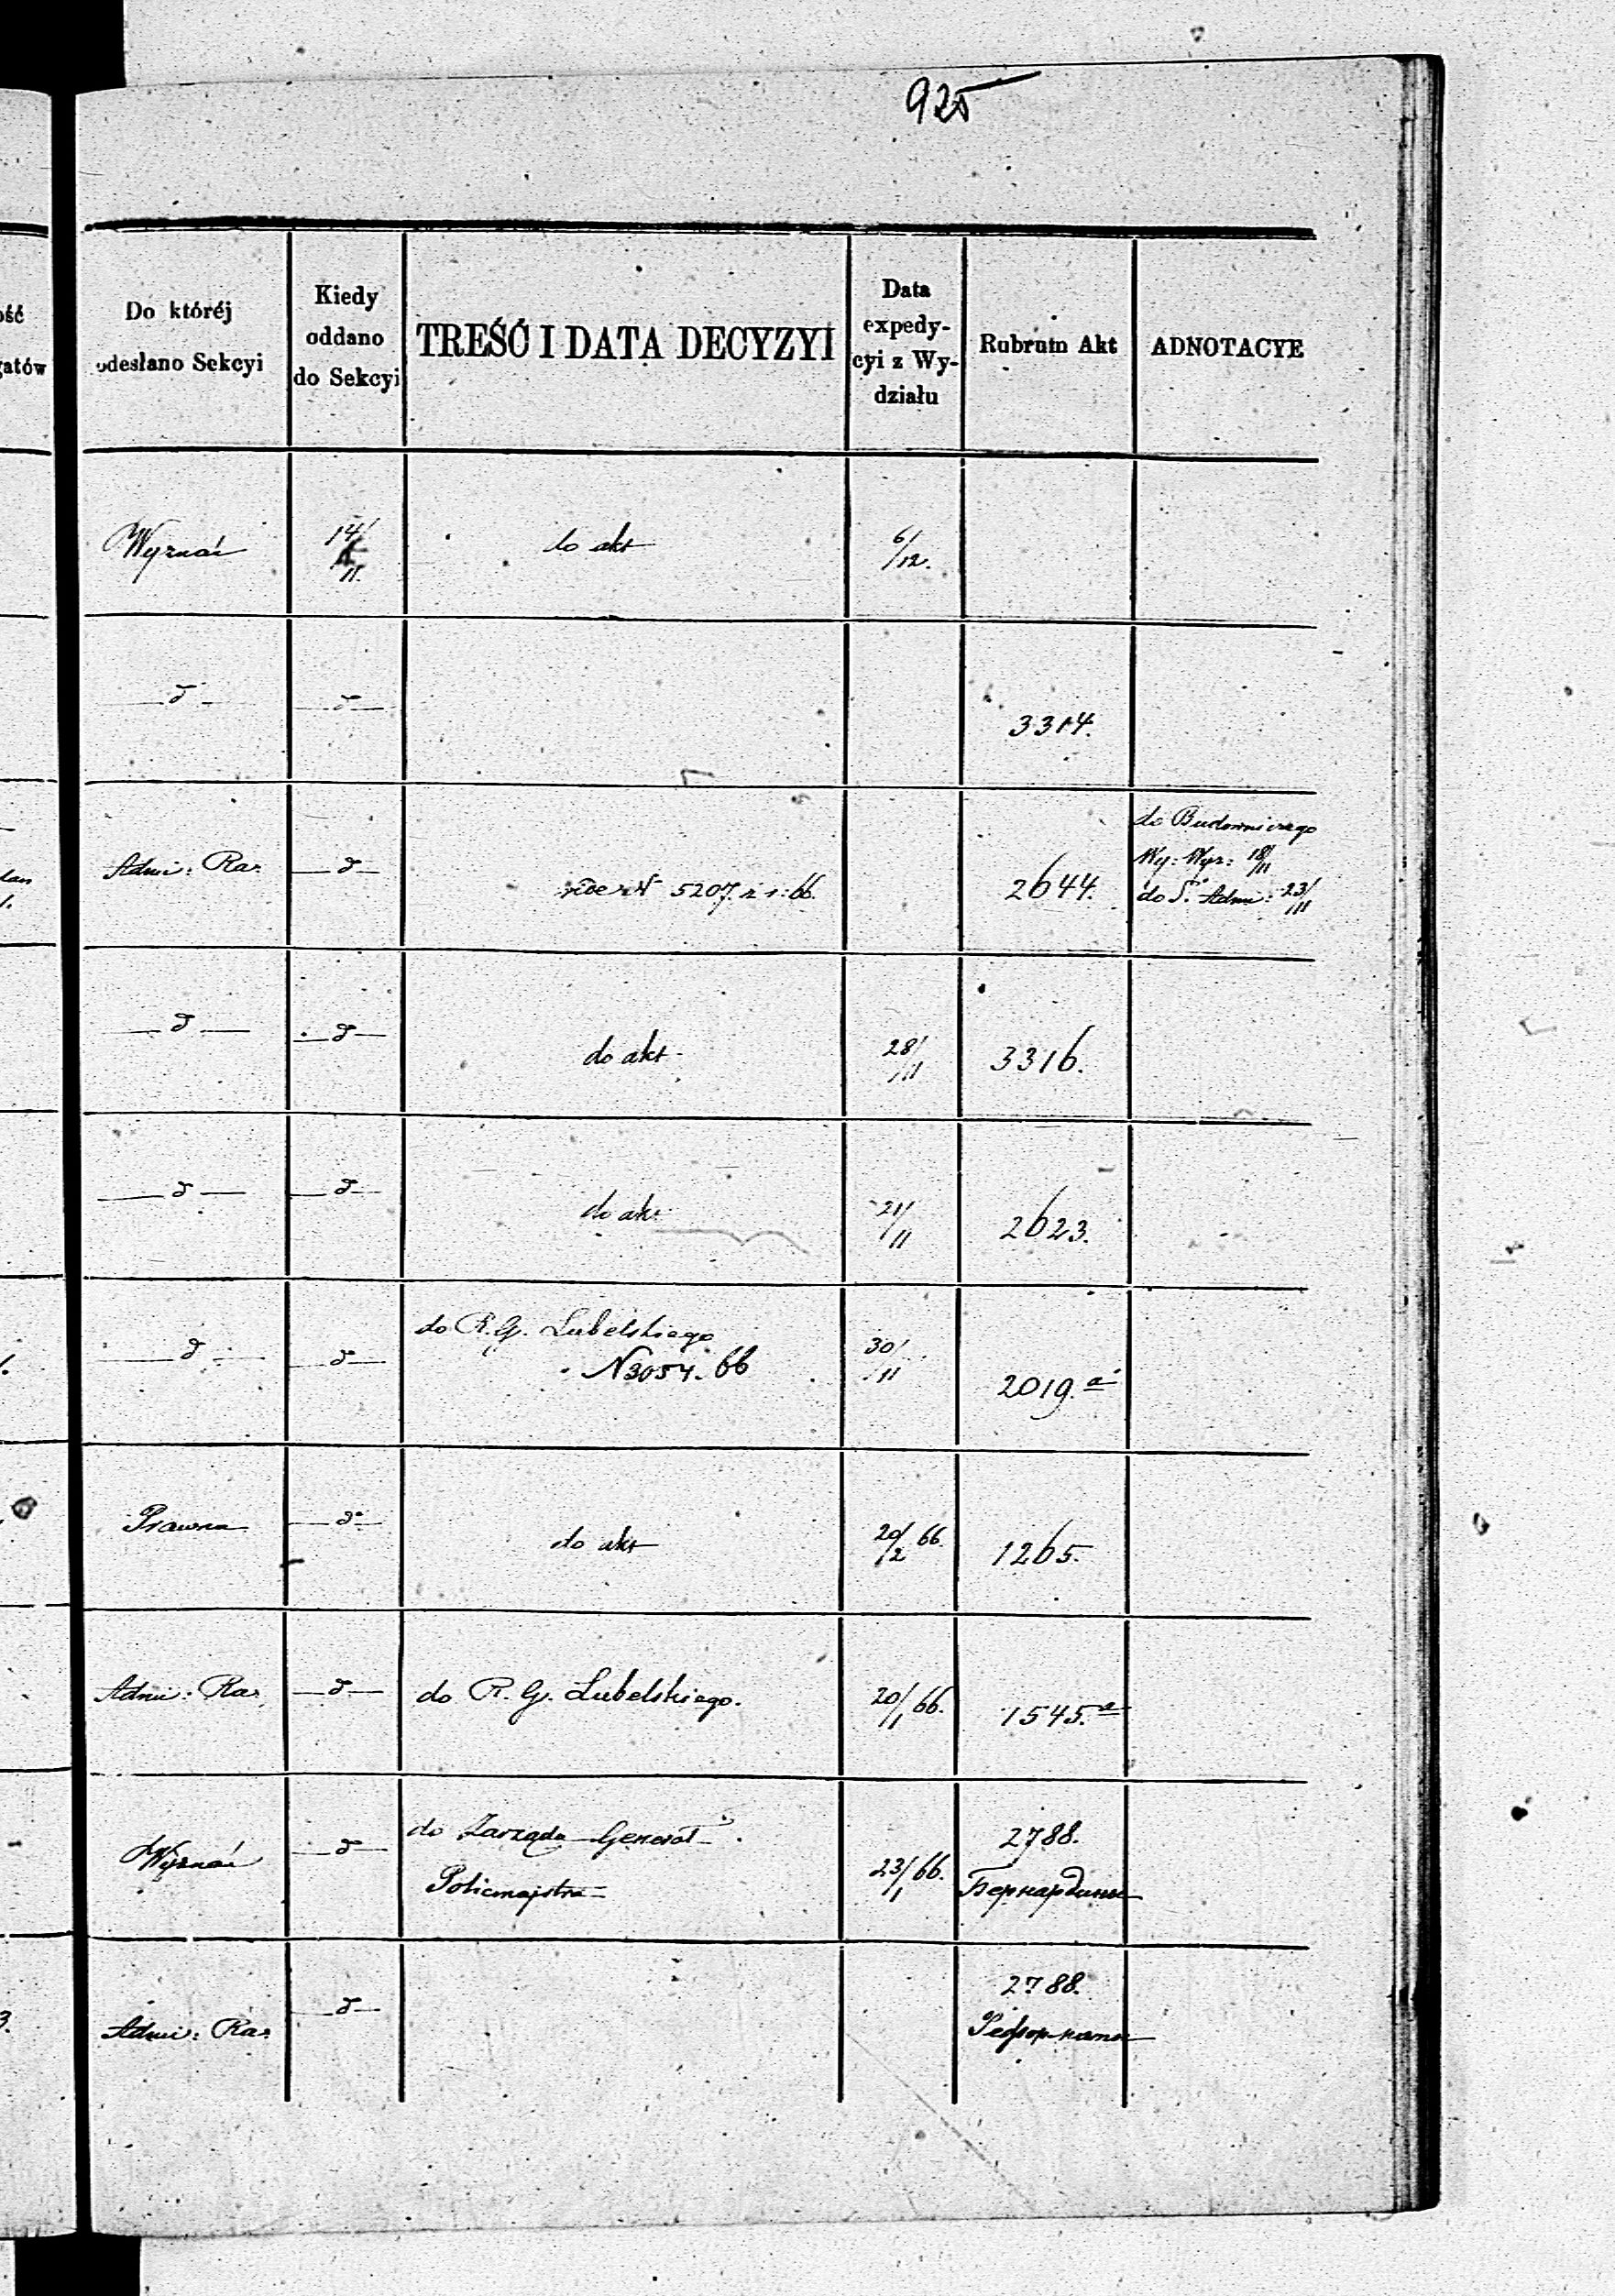 925
ość
gatów
Do któréj
odesłano Sekcyi
Kiedy
oddano
do Sekcyi
TREŚĆ I DATA DECYZYI
Data
expedy-
cyi z Wy-
działu
Rubrum Akt
ADNOTACYE
Wyznań
14/11.
do akt
6/12.
— d —
— d —
3314.
Admi: Ra:
— d —
vide N 5207. z r: 66.
2644.
do Budowniczego
Wy: Wyz: 18/11
do S. Admi: 23/11
— d —
— d —
do akt
28/11
3316.
— d —
— d —
do akt
21/11
2623.
— d —
— d —
do R. G. Lubelskiego
N 3054. 66
30/11
2019. a
Prawna
— d —
do akt
20/2 66.
1265.
Admi: Ra:
— d —
do R. G. Lubelskiego.
20/1 66.
1545. a
Wyznań
— d —
do Zarządu Generał
Policmajstra
23/1 66.
2788.
Бернардины
3.
Admi: Ra:
— d —
2788.